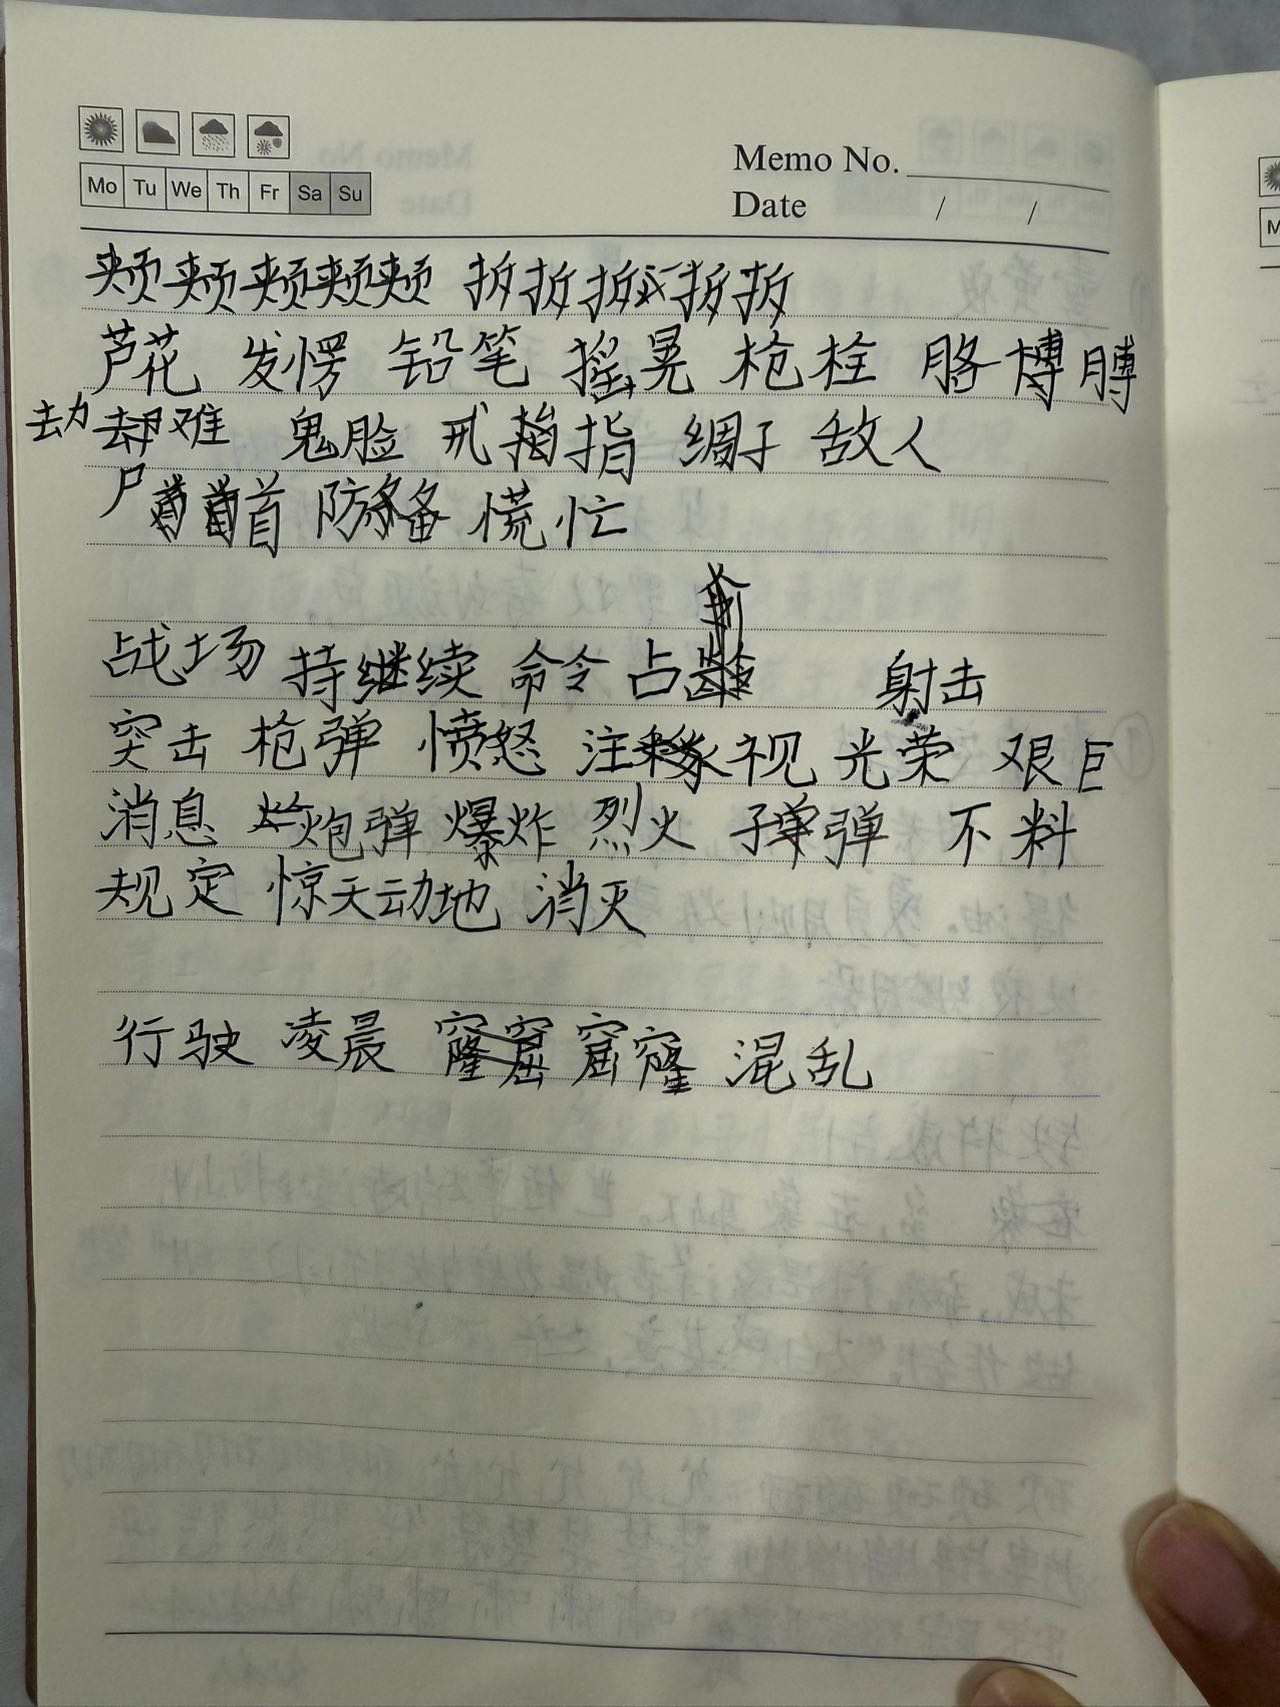 Memo No.
Mo Tu We Th Fr Sa Su
Date / /
颊颊颊颊颊 拆拆拆拆拆
芦花 发愣 铅笔 摇晃 枪栓 胳 膊
劫 难 鬼脸 戒指 绸子 敌人
首 防备 慌忙
战场 持继续 命令 占 射击
突击 枪弹 愤怒 注视 光荣 艰巨
消息 炮弹 爆炸 烈火 子弹 不料
规定 惊天动地 消灭
行驶 凌晨 窟窿 混乱